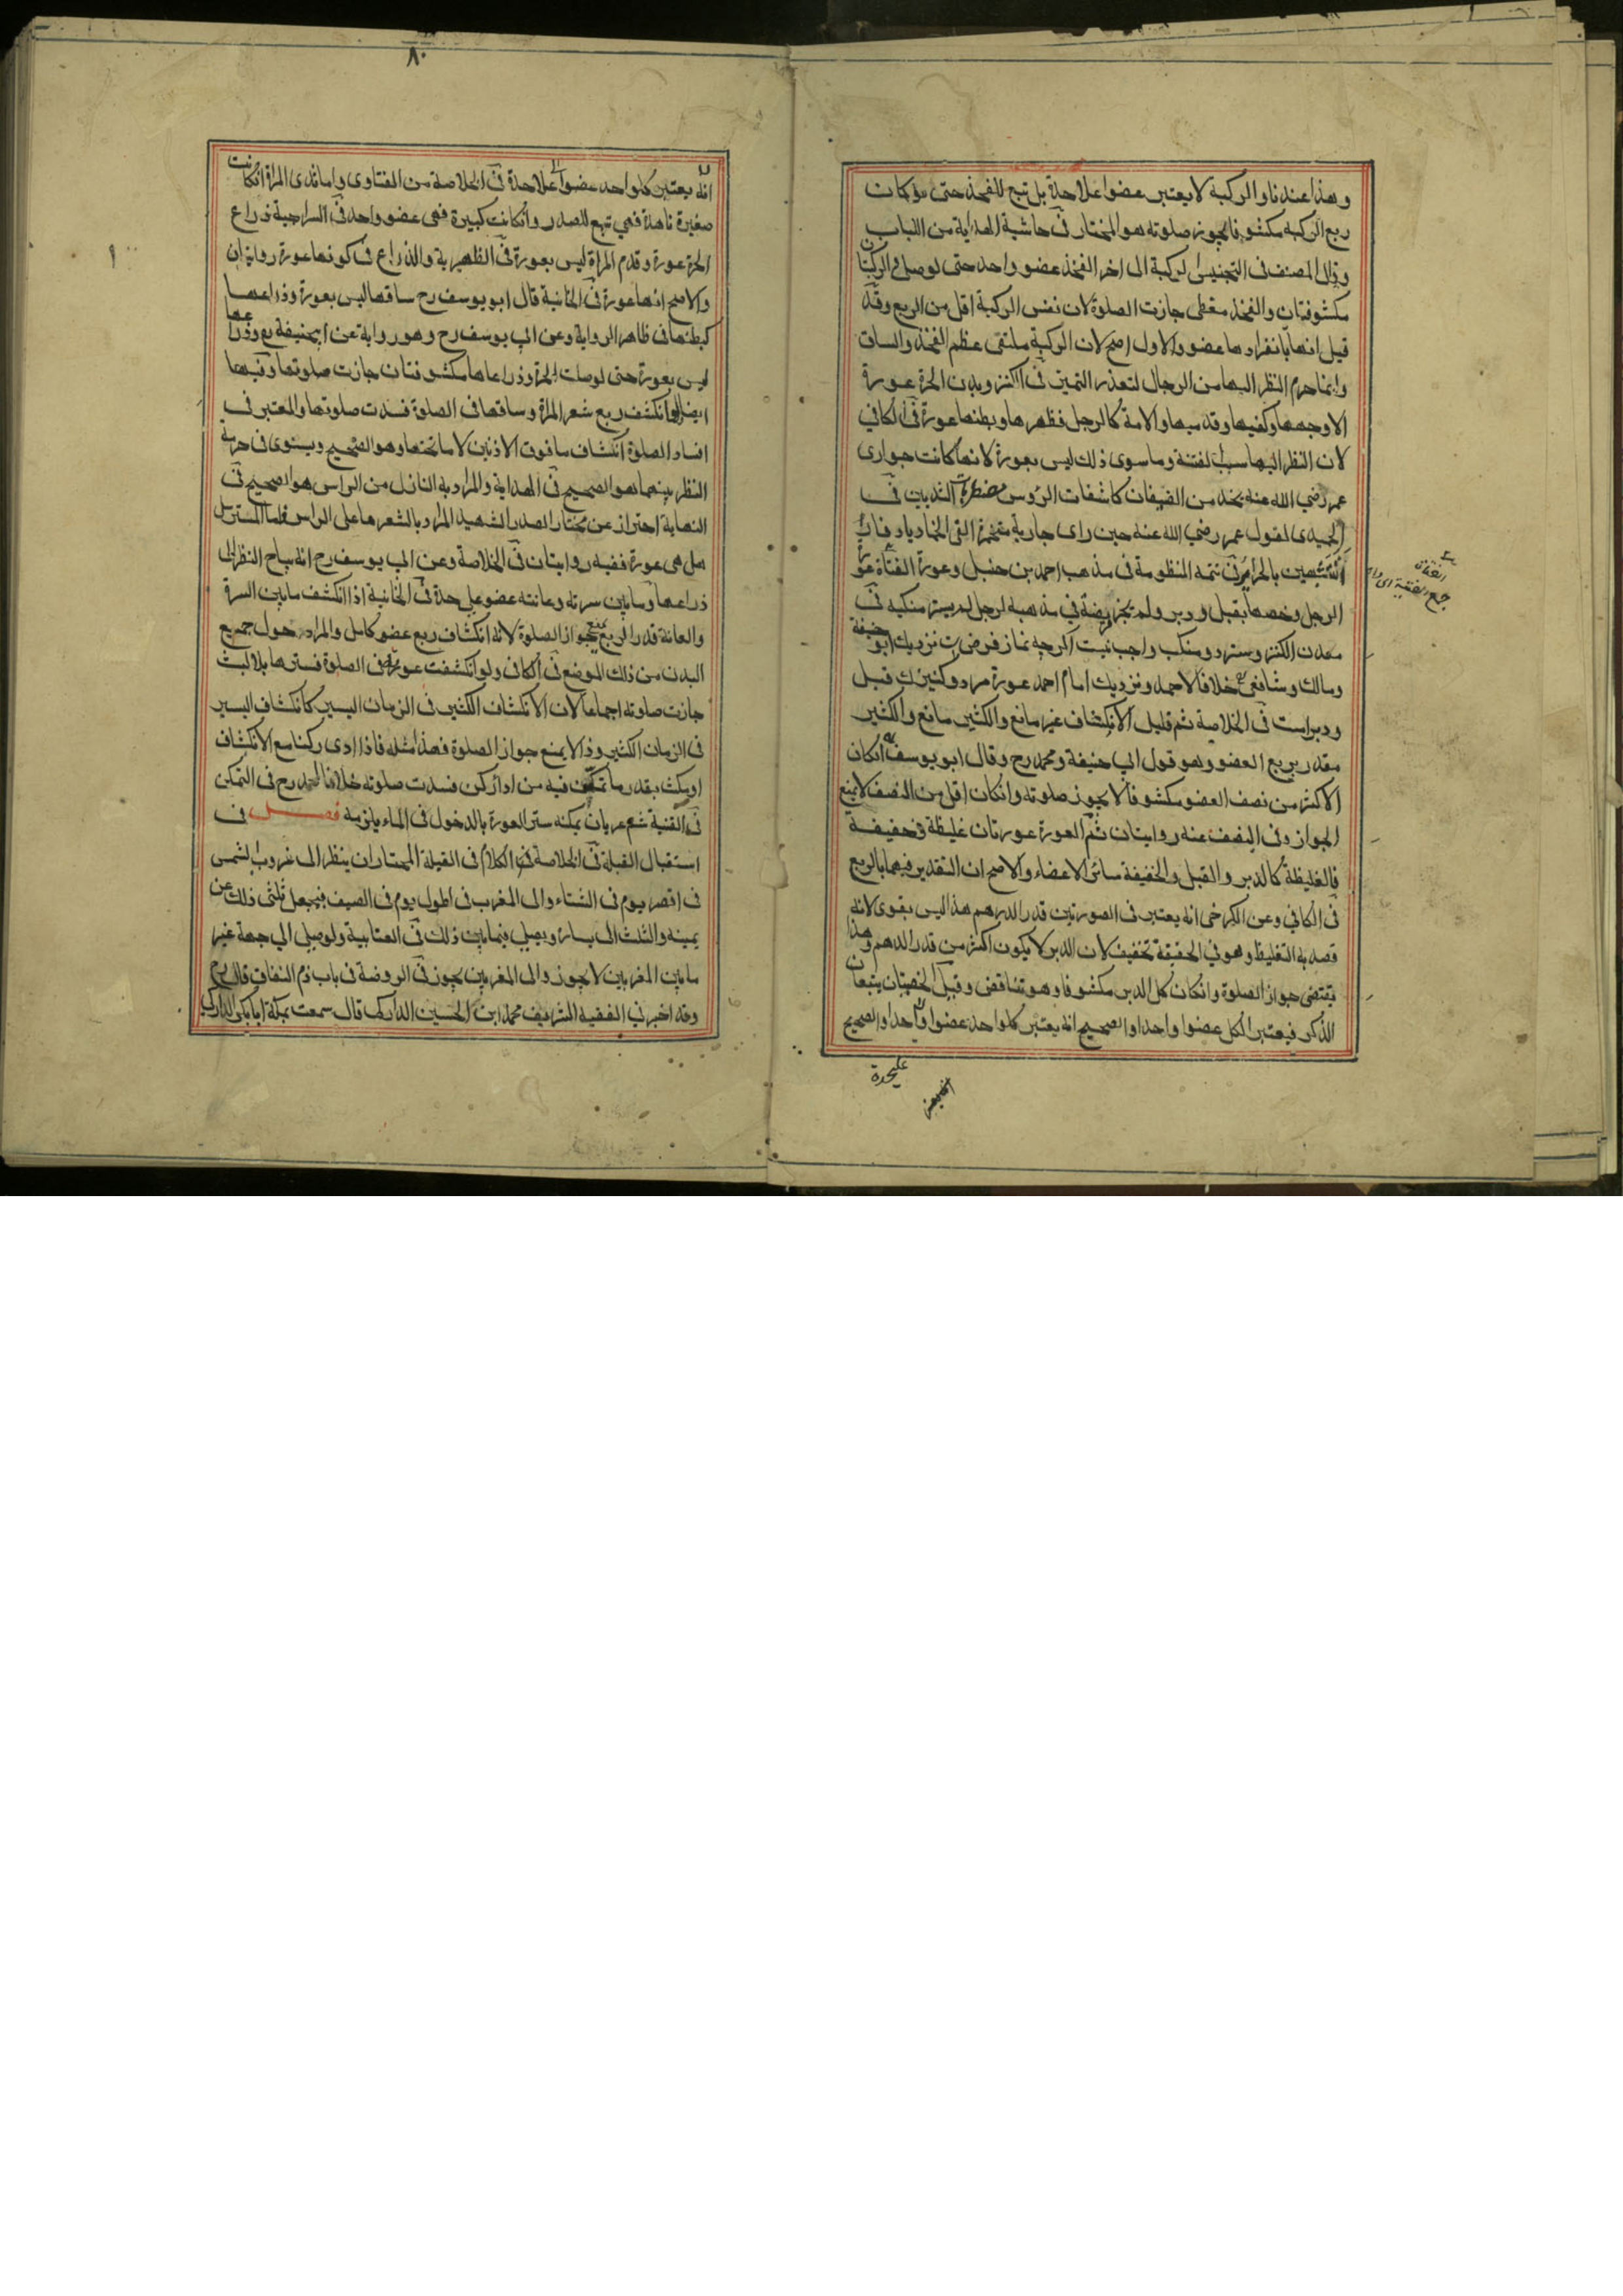 وهذا عندنا والركبة لا يعتبر عضوا علاحدة بل تبع للفخذ حتى لو كان
ربع الركبة مكشوفا يجوز صلوته هو المختار في حاشية الهداية من اللباب
وذال المصنف في التجنيس الركبة الى اخر الفخذ عضو واحد حتى لو صلى والركبتان
مكشوفتان والفخذ مغطى جازت الصلوة لان نفس الركبة اقل من الربع وقد
قيل انها بانفرادها عضو والاول اصح لان الركبة ملتقى عظم الفخذ والساق
وانما حرم النظر اليها من الرجال لتعذر التميز في الكنز وبدن الحرة عورة
الا وجهها وكفيها وقدميها والامة كالرجل فظهرها وبطنها عورة في الكافي
لان النظر اليها سبب لفتنة وما سوى ذلك ليس بعورة لانها كانت جوارى
عمر رضي الله عنه يخدمن الضيفان كاشفات الرؤس مضطربات الثديين في
الحميدى لقول عمر رضي الله عنه حين راى جارية متخمرة القى الخمار يا دفار
اتتشبهين بالحراير في تتمة المنظومة في مذهب احمد بن حنبل وعورة الفتاة عورة
الرجل وخصها بقبل ودبر ولم يجز فريضة في مذهبه لرجل لم يستر منكبيه في
معدن الكنز وستر دو منكب واجب نيست اكرچه نماز فرض ست نزديك ابو حنيفة
ومالك وشافعي خلافا لاحمد ونزديك امام احمد عورة مرد وكنيزك قبل
ودبر است في الخلاصة ثم قليل الانكشاف غير مانع والكثير مانع والكثير
مقدر بربع العضو وهو قول ابي حنيفة ومحمد رح وقال ابو يوسف ان كان
الاكثر من نصف العضو مكشوفا لا يجوز صلوته وان كان اقل من النصف لا يمنع
الجواز وفي النصف عنه روايتان ثم العورة عورتان غليظة وخفيفة
فالغليظة كالدبر والقبل والخفيفة سائر الاعضاء والاصح ان التقدير فيهما بالربع
في الكافي وعن الكرخى انه يعتبر في الصورتين قدر الدرهم هذا ليس بقوى لانه
قصد به التغليظ وهو في الحقيقة تخفيف لان الدبر لا يكون اكثر من قدر الدرهم وهذا
يقتضى جواز الصلوة وان كان كل الدبر مكشوفا وهو تناقض وقيل الخصيتان يتبعان
الذكر فيعتبر الكل عضوا واحدا والصحيح انه يعتبر كل واحد عضوا واحدا والصحيح
عليحدة
٨٠
انه يعتبر كل واحد عضوا علاحدة في الخلاصة من الفتاوى واما ثدى المراة ان كانت
صغيرة ناهدة فهي تبع للصدر وان كانت كبيرة فهى عضو واحد في السراجية ذراع
الحرة عورة وقدم المراة ليس بعورة في الظهيرية والذراع في كونها عورة روايتان
والاصح انها عورة في الخانية قال ابو يوسف رح ساقها ليس بعورة وذراعها
كبطنها في ظاهر الرواية وعن ابي يوسف رح وهو رواية عن ابيحنيفة رح وذراعها
ليس بعورة حتى لو صلت الحرة وذراعاها مكشوفتان جازت صلوتها وفيها
ايضا اذا انكشف ربع شعر المراة وساقها في الصلوة فسدت صلوتها والمعتبر في
افساد الصلوة انكشاف ما فوق الاذنين لا ما تحتها وهو الصحيح ويستوى في حرمة
النظر بينهما هو الصحيح في الهداية والمراد به النازل من الراس هو الصحيح في
النهاية احتراز عن مختار الصدر الشهيد المراد بالشعر ما على الراس فاما المسترسل
هل هى عورة ففيه روايتان في الخلاصة وعن ابي يوسف رح انه يباح النظر الى
ذراعها وما بين سرته وعانته عضو عليحدة في الخانية اذا انكشف ما بين السرة
والعانة قدر الربع يمنع جواز الصلوة لانه انكشاف ربع عضو كامل والمراد حول جميع
البدن من ذلك الموضع في الكافي ولو انكشفت عورته في الصلوة فسترها بلا لبث
جازت صلوته اجماعا لان الانكشاف الكثير في الزمان اليسير كانكشاف اليسير
في الزمان الكثير وذا لا يمنع جواز الصلوة فهذا مثله فاذا ادى ركنا مع الانكشاف
او مكث بقدر ما تمكن فيه من اداء ركن فسدت صلوته خلافا لمحمد رح في التمكن
في القنية شم عريان يمكنه ستر العورة بالدخول في الماء يلزمه فصل في
استقبال القبلة في الخلاصة في الكلام في القبلة المختار ان ينظر الى غروب الشمس
في اقصر يوم في الشتاء والى المغرب في اطول يوم في الصيف فيجعل ثلثى ذلك عن
يمينه والثلث الى يساره ويصلي فيما بين ذلك في العتابية ولو صلى الى جهة غير
ما بين المغربين لا يجوز والى المغربين يجوز في الروضة في باب ذم النفاق قال رح
وقد اخبرني الفقيه الشريف محمد ابن الحسين الداركى قال سمعت بمكة ابا بكر الداركى